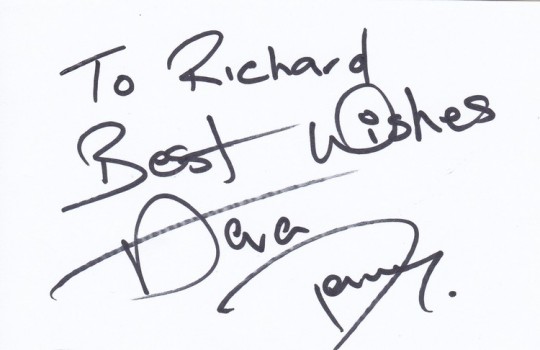 To Richard
Best Wishes
Dara